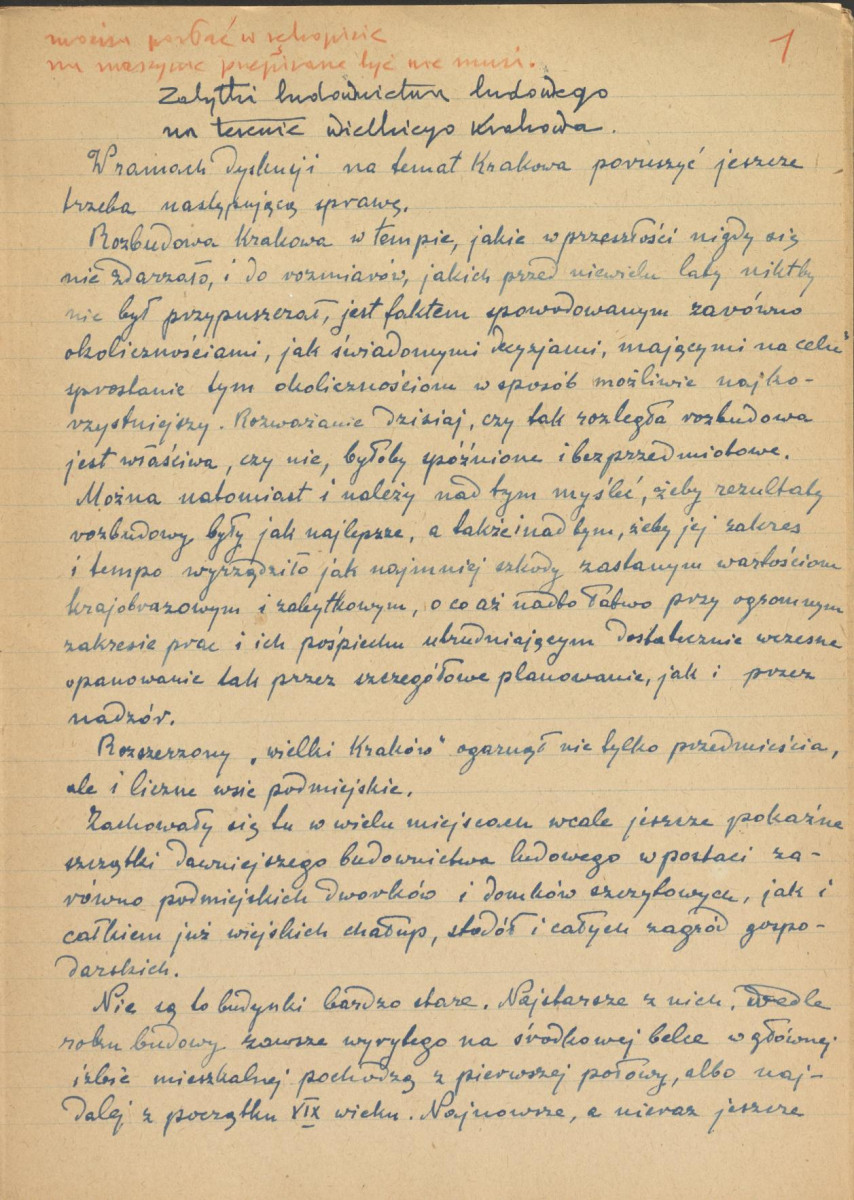 można posłać w rękopisie
na maszynie przepisane być nie musi.
1
Zabytki budownictwa ludowego
na terenie wielkiego Krakowa.
W ramach dyskusji na temat Krakowa poruszyć jeszcze
trzeba następującą sprawę.
Rozbudowa Krakowa w tempie, jakie w przeszłości nigdy się
nie zdarzało, i do rozmiarów, jakich przed niewielu laty niktby
nie był przypuszczał, jest faktem spowodowanym zarówno
okolicznościami, jak świadomymi decyzjami, mającymi na celu
sprostanie tym okolicznościom w sposób możliwie najko-
rzystniejszy. Rozważanie dzisiaj, czy tak rozległa rozbudowa
jest właściwa, czy nie, byłoby spóźnione i bezprzedmiotowe.
Można natomiast i należy nad tym myśleć, żeby rezultaty
rozbudowy były jak najlepsze, a także i nad tym, żeby jej zakres
i tempo wyrządziło jak najmniej szkody zastanym wartościom
krajobrazowym i zabytkowym, o co aż nadto łatwo przy ogromnym
zakresie prac i ich pośpiechu utrudniającym dostatecznie wczesne
opanowanie tak przez szczegółowe planowanie, jak i przez
nadzór.
Rozszerzony „wielki Kraków" ogarnął nie tylko przedmieścia,
ale i liczne wsie podmiejskie.
Zachowały się tu w wielu miejscach wcale jeszcze pokaźne
szczątki dawniejszego budownictwa ludowego w postaci za-
równo podmiejskich dworków i domków szczytowych, jak i
całkiem już wiejskich chałup, stodół i całych zagród gospo-
darskich.
Nie są to budynki bardzo stare. Najstarsze z nich, wedle
roku budowy zawsze wyrytego na środkowej belce w głównej
izbie mieszkalnej pochodzą z pierwszej połowy, albo naj-
dalej z początku XIX wieku. Najnowsze, a nieraz jeszcze